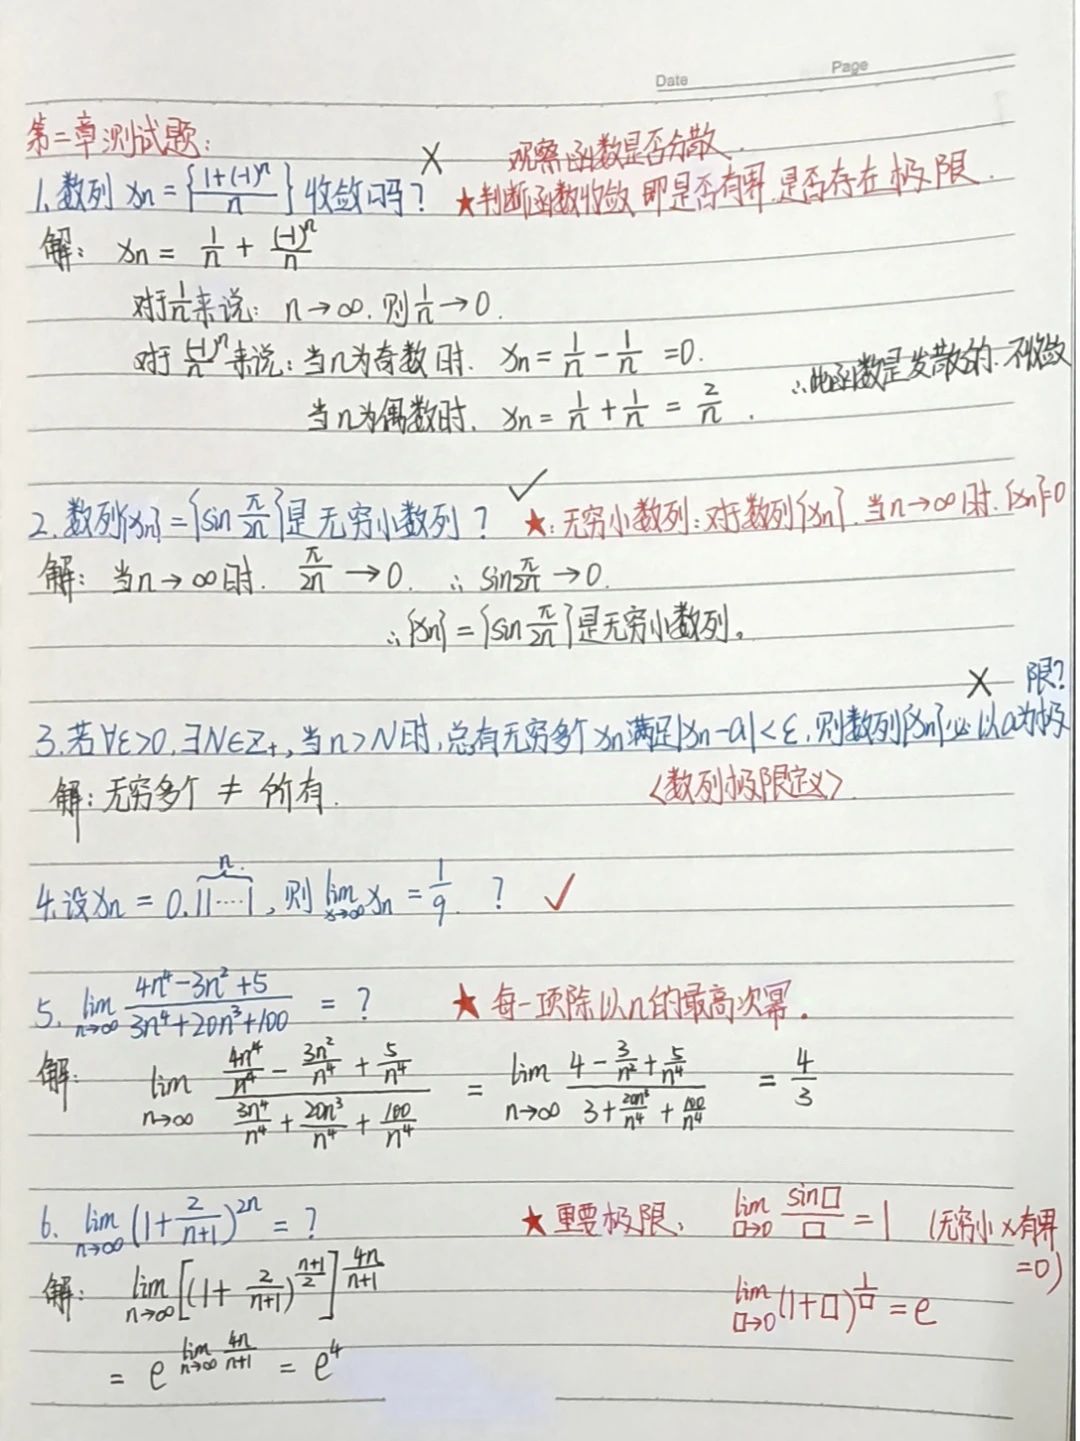 Date Page
第二章测试题:
× 观察函数是否分散.
1. 数列 xn = {\frac{1+(-1)^n}{n}} 收敛吗? ★判断函数收敛 即是否有界.是否存在极限.
解: xn = \frac{1}{n} + \frac{(-1)^n}{n}
对于\frac{1}{n}来说: n→∞. 则\frac{1}{n}→0.
对于\frac{(-1)^n}{n}来说: 当n为奇数时. xn = \frac{1}{n} - \frac{1}{n} =0. ∴此函数是发散的.不收敛
当n为偶数时. xn = \frac{1}{n} + \frac{1}{n} = \frac{2}{n}.
✓
2. 数列{xn} = {sin \frac{π}{2n}}是无穷小数列? ★:无穷小数列:对于数列{xn}.当n→∞时.{xn}=0
解: 当n→∞时. \frac{π}{2n} →0. ∴ sin\frac{π}{2n} →0.
∴{xn} = {sin \frac{π}{2n}}是无穷小数列。
× 限?
3. 若∀ε>0, ∃N∈Z+, 当n>N时, 总有无穷多个xn满足|xn-a|<ε, 则数列{xn}必以a为极
解: 无穷多个 ≠ 所有. <数列极限定义>
n.
4. 设xn = 0.11····1, 则 \lim_{x→∞} xn = \frac{1}{9}. ? ✓
5. \lim_{n→∞} \frac{4n^4-3n^2+5}{3n^4+20n^3+100} = ? ★ 每一项除以n的最高次幂.
解: \lim_{n→∞} \frac{\frac{4n^4}{n^4} - \frac{3n^2}{n^4} + \frac{5}{n^4}}{\frac{3n^4}{n^4} + \frac{20n^3}{n^4} + \frac{100}{n^4}} = \lim_{n→∞} \frac{4 - \frac{3}{n^2} + \frac{5}{n^4}}{3 + \frac{20n^3}{n^4} + \frac{100}{n^4}} = \frac{4}{3}
6. \lim_{n→∞} (1+\frac{2}{n+1})^{2n} = ? ★ 重要极限、 \lim_{□→0} \frac{sin□}{□} = 1 (无穷小×有界=0)
解: \lim_{n→∞} [(1+\frac{2}{n+1})^{\frac{n+1}{2}}]^{\frac{4n}{n+1}} \lim_{□→0} (1+□)^{\frac{1}{□}} = e
= e^{\lim_{n→∞} \frac{4n}{n+1}} = e^4